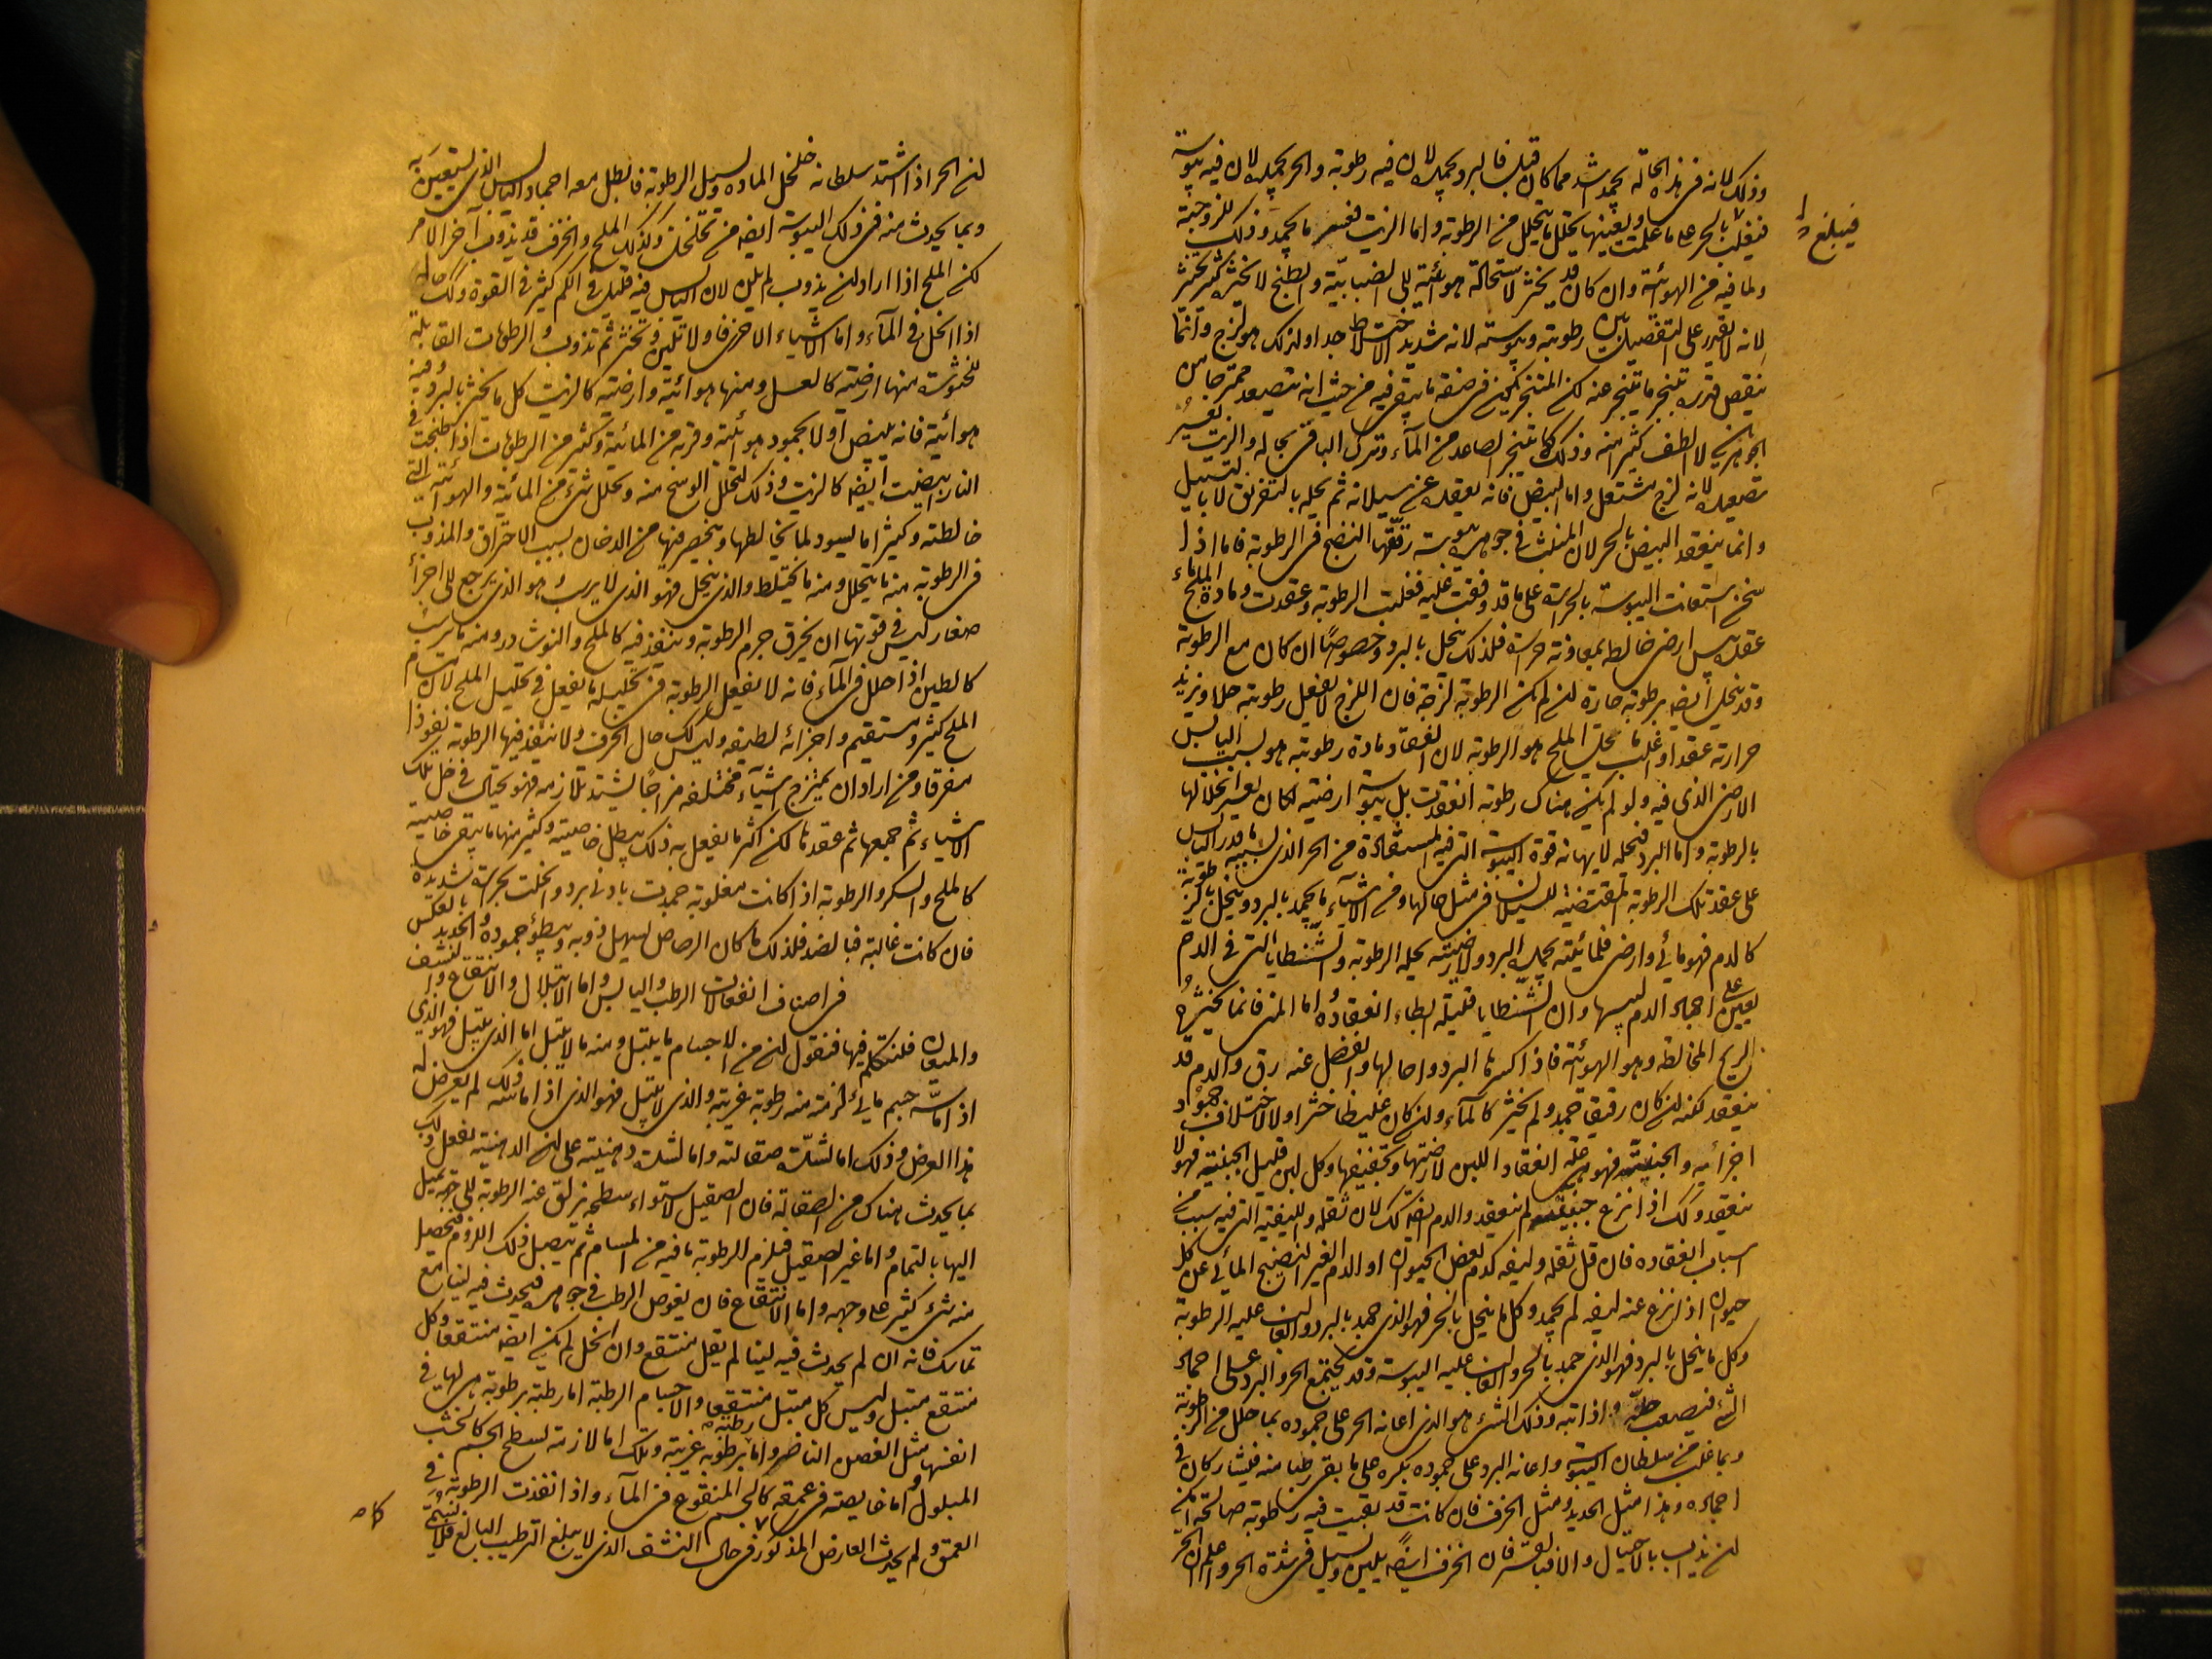 وذلك لانه فى هذه الحالة يجمد اشد مما كان قبل فالبرد يجمده لان فيه رطوبة والحر يجمده لان فيه يبوسة
فيغلب بالحر على ما علمت ويعينها تحلل ما يتحلل من الرطوبة واما الزيت فعسر ما يجمد وذلك للزوجته
فيبلغ
ولما فيه من الهوائية وان كان قد يخثر لاستحالة هوائية الى الضبابية والطبخ لا يخثره كثير تخثر
لانه لا يقدر على التفصيل بين رطوبته ويبوسته لانه شديد الاختلاط جدا ولذلك هو لزج وانما
ينقص قدره بتبخر ما يتبخر عنه لكن المتبخر يكون فى صفة ما يبقى فيه من حيث انه يتصعد ممتزجا من
الجوهرين لا لطف كثير منه وذلك كما يتبخر الصاعد من المآء ويترك الباقى بحاله والزيت يعسر
تصعيده لانه لزج مشتعل واما البيض فانه يعقده عن سيلانه ثم يحله بالتفريق لا بالتسييل
وانما ينعقد البيض بالحر لان المنبث فى جوهره يبوسة رققها النضج فى الرطوبة فاما اذا
سخن استعانت اليبوسة بالحرارة على ما قد وقفت عليه فغلبت الرطوبة وعقدت ومادة الملح ماء
عقده يبس ارضى خالطه بمعاونة حرارة فلذلك ينحل بالبرد وخصوصًا ان كان مع الرطوبة
وقد ينحل ايضا برطوبة حارة لان لم تكن الرطوبة لزجة فان اللزج لا يفعل رطوبته حلا ويزيد
حرارته عقدا واغلب ما يحل الملح هو الرطوبة لان انعقاد مادة رطوبته هو بسبب اليابس
الارضى الذى فيه ولو لم يكن هناك رطوبة انعقدت بل يبوسة ارضية لكان يعسر انحلالها
بالرطوبة واما البرد فيحله لايهانه قوة اليبوسة التى فيه المستفادة من الحر الذى بسببه ما قدر اليابس
على عقد تلك الرطوبة المقتضية للسيلان فى مثل حالها ومن الاشيآء ما يجمد بالبرد وينحل بالرطوبة
كالدم فهو مائى وارضى فلمائيته يجمده البرد ولارضيته يحله الرطوبة والشظايا التى فى الدم
يعين على اجماد الدم بيبسها وان الشظايا قليلة ابطاء انعقاده واما المنى فانما يخثره
الريح المخالطة وهو الهوائية فاذا اكسرتها البرد واحالها وانفصل عنه رق والدم قد
ينعقد لكنه ان كان رقيقا جمد ولم يخثر كالماء وان كان غليظا خثر اولا لاختلاف جمود
اجزائه والجبنية فهو علة انعقاد اللبن لارضيتها وتجفيفها وكل لبن قليل الجبنية فهو لا
ينعقد وكك اذا نزع جبنيته لم ينعقد والدم ايضا كك لان ثقله ولليفية التى فيه سبب من
اسباب انعقاده فان قل ثقله وليفه كدم بعض الحيوان او الدم الغير النضيج المائى عن كل
حيوان اذا نزع عنه ليفه لم يجمد وكل ما ينحل بالحر فهو الذى جمد بالبرد والغالب عليه الرطوبة
وكل ما ينحل بالبرد فهو الذى جمد بالحر والغالب عليه اليبوسة وقد يجتمع الحر والبرد على اجماد
الشئ فيصعب حله واذابته وذلك الشئ هو الذى اعانه الحر على جموده بما حلل من الرطوبة
وبما غلب من سلطان اليبوسة واعانه البرد على جموده بكره على ما بقى رطبا منه فليتشاركان فى
اجماده وهذا مثل الحديد ومثل الخزف فان كانت قد بقيت فيه رطوبة صالحة امكن
ان يذاب بالاحتيال والا فبالقسر فان الخزف ايضًا يلين ويسيل فى شدة الحر واعلم ان الحر
لان الحر اذا اشتد سلطانه خلخل المادة وسيل الرطوبة فابطل معه اجماد اليابس الذى يستعين به
وبما يحدث منه فى ذلك اليبوسة ايضا من تخلخل وكذلك الملح والخزف قد يذوب آخر الامر
لكن الملح اذا اراد ان يذوب لم يلن لان اليابس فيه قليل فى الكم كثير فى القوة وكك حاله
اذا انحل فى المآء واما الاشياء الاخرى فاولا تلين وتخثر ثم تذوب والرطوبات القابلة
للخثورة منها ارضية كالعسل ومنها هوائية وارضية كالزيت كل ما يخثر بالبرد وفيه
هوائية فانه يبيض اولا لجمود هوائيته وقربه من المائية وكثير من الرطوبات اذا طبخت فى
النار ابيضت ايضا كالزيت وذلك لتحلل الوسخ منه وتحلل شئ من المائية والهوائية التى
خالطته وكثيرا ما يسود لما يخالطها وينحصر فيها من الدخان بسبب الاحتراق والمذوب
فى الرطوبة منه ما ينحل ومنه ما يختلط والذى ينحل فهو الذى لا يرسب وهو الذى يرجع الى اجزآء
صغار ليس فى قوتها ان يخرق جرم الرطوبة وينفذ فيه كالملح والنوشادر ومنه ما يرسب
كالطين اذا حلل فى المآء فانه لا يفعل الرطوبة فى تحليله ما يفعل فى تحليل الملح لان مسام
الملح كثير ومستقيم واجزائه لطيفه وليس كك حال الخزف ولا ينفذ فيها الرطوبة نفوذا
مفرقا ومن اراد ان يمتزج اشيآء مختلفة مزاجًا يشتد تلازمه فهو يحتال فى حل تلك
الاشياء ثم جمعها ثم عقدها لكن اكثر ما يفعل به ذلك يبطل خاصيته وكثير منها ما يبقى خاصيته
كالملح والسكر والرطوبة اذا كانت مغلوبة جمدت بادنى برد وانحلت بحرارة شديدة
فان كانت غالبة فبالضد فلذلك ما كان الرصاص يسهل ذوبه ويبطؤ جموده والحديد بالعكس
فى اصناف انفعالات الرطب واليابس واما الابتلال والانتقاع والنشف
والميعان فلنتكلم فيها فنقول ان من الاجسام ما يبتل ومنه ما لا يبتل اما الذى يبتل فهو الذى
اذا ماسه جسم مائى لزمته منه رطوبة غريبة والذى لا يبتل فهو الذى اذا ماسه ذلك لم يعرض له
هذا العرض وذلك اما لشدة صقالته واما لشدة دهنيته على ان الدهنية يفعل ذلك
بما يحدث هناك من الصقالة فان الصقيل لاستواء سطحه يزلق عنه الرطوبة الى جهة يميل
اليها بالتمام واما غير الصقيل فيلزم الرطوبة ما فيه من المسام ثم يتصل ذلك اللزوم فيحصل
منه شئ كثير على وجهه واما الانتقاع فان يغوص الرطب فى جوهره فيحدث فيه لينا مع
تماسك فانه ان لم يحدث فيه لينا لم يقل منتقع وان انحل لم يكن ايضا منتقعا وكل
منتقع مبتل وليس كل مبتل منتقعا والاجسام الرطبة اما رطبة برطوبة هى لها فى
انفسها مثل الغصن الناضر واما رطبة برطوبة غريبة وتلك اما لازمة لسطح الجسم كالخشب
المبلول واما غايصة فى عمقه كالجسم المنقوع فى المآء واذا انفذت الرطوبة فى
العمق ولم يحدث العارض المذكور فى حال النشف الذى لا يبلغ الترطيب البالغ فلا يسمى